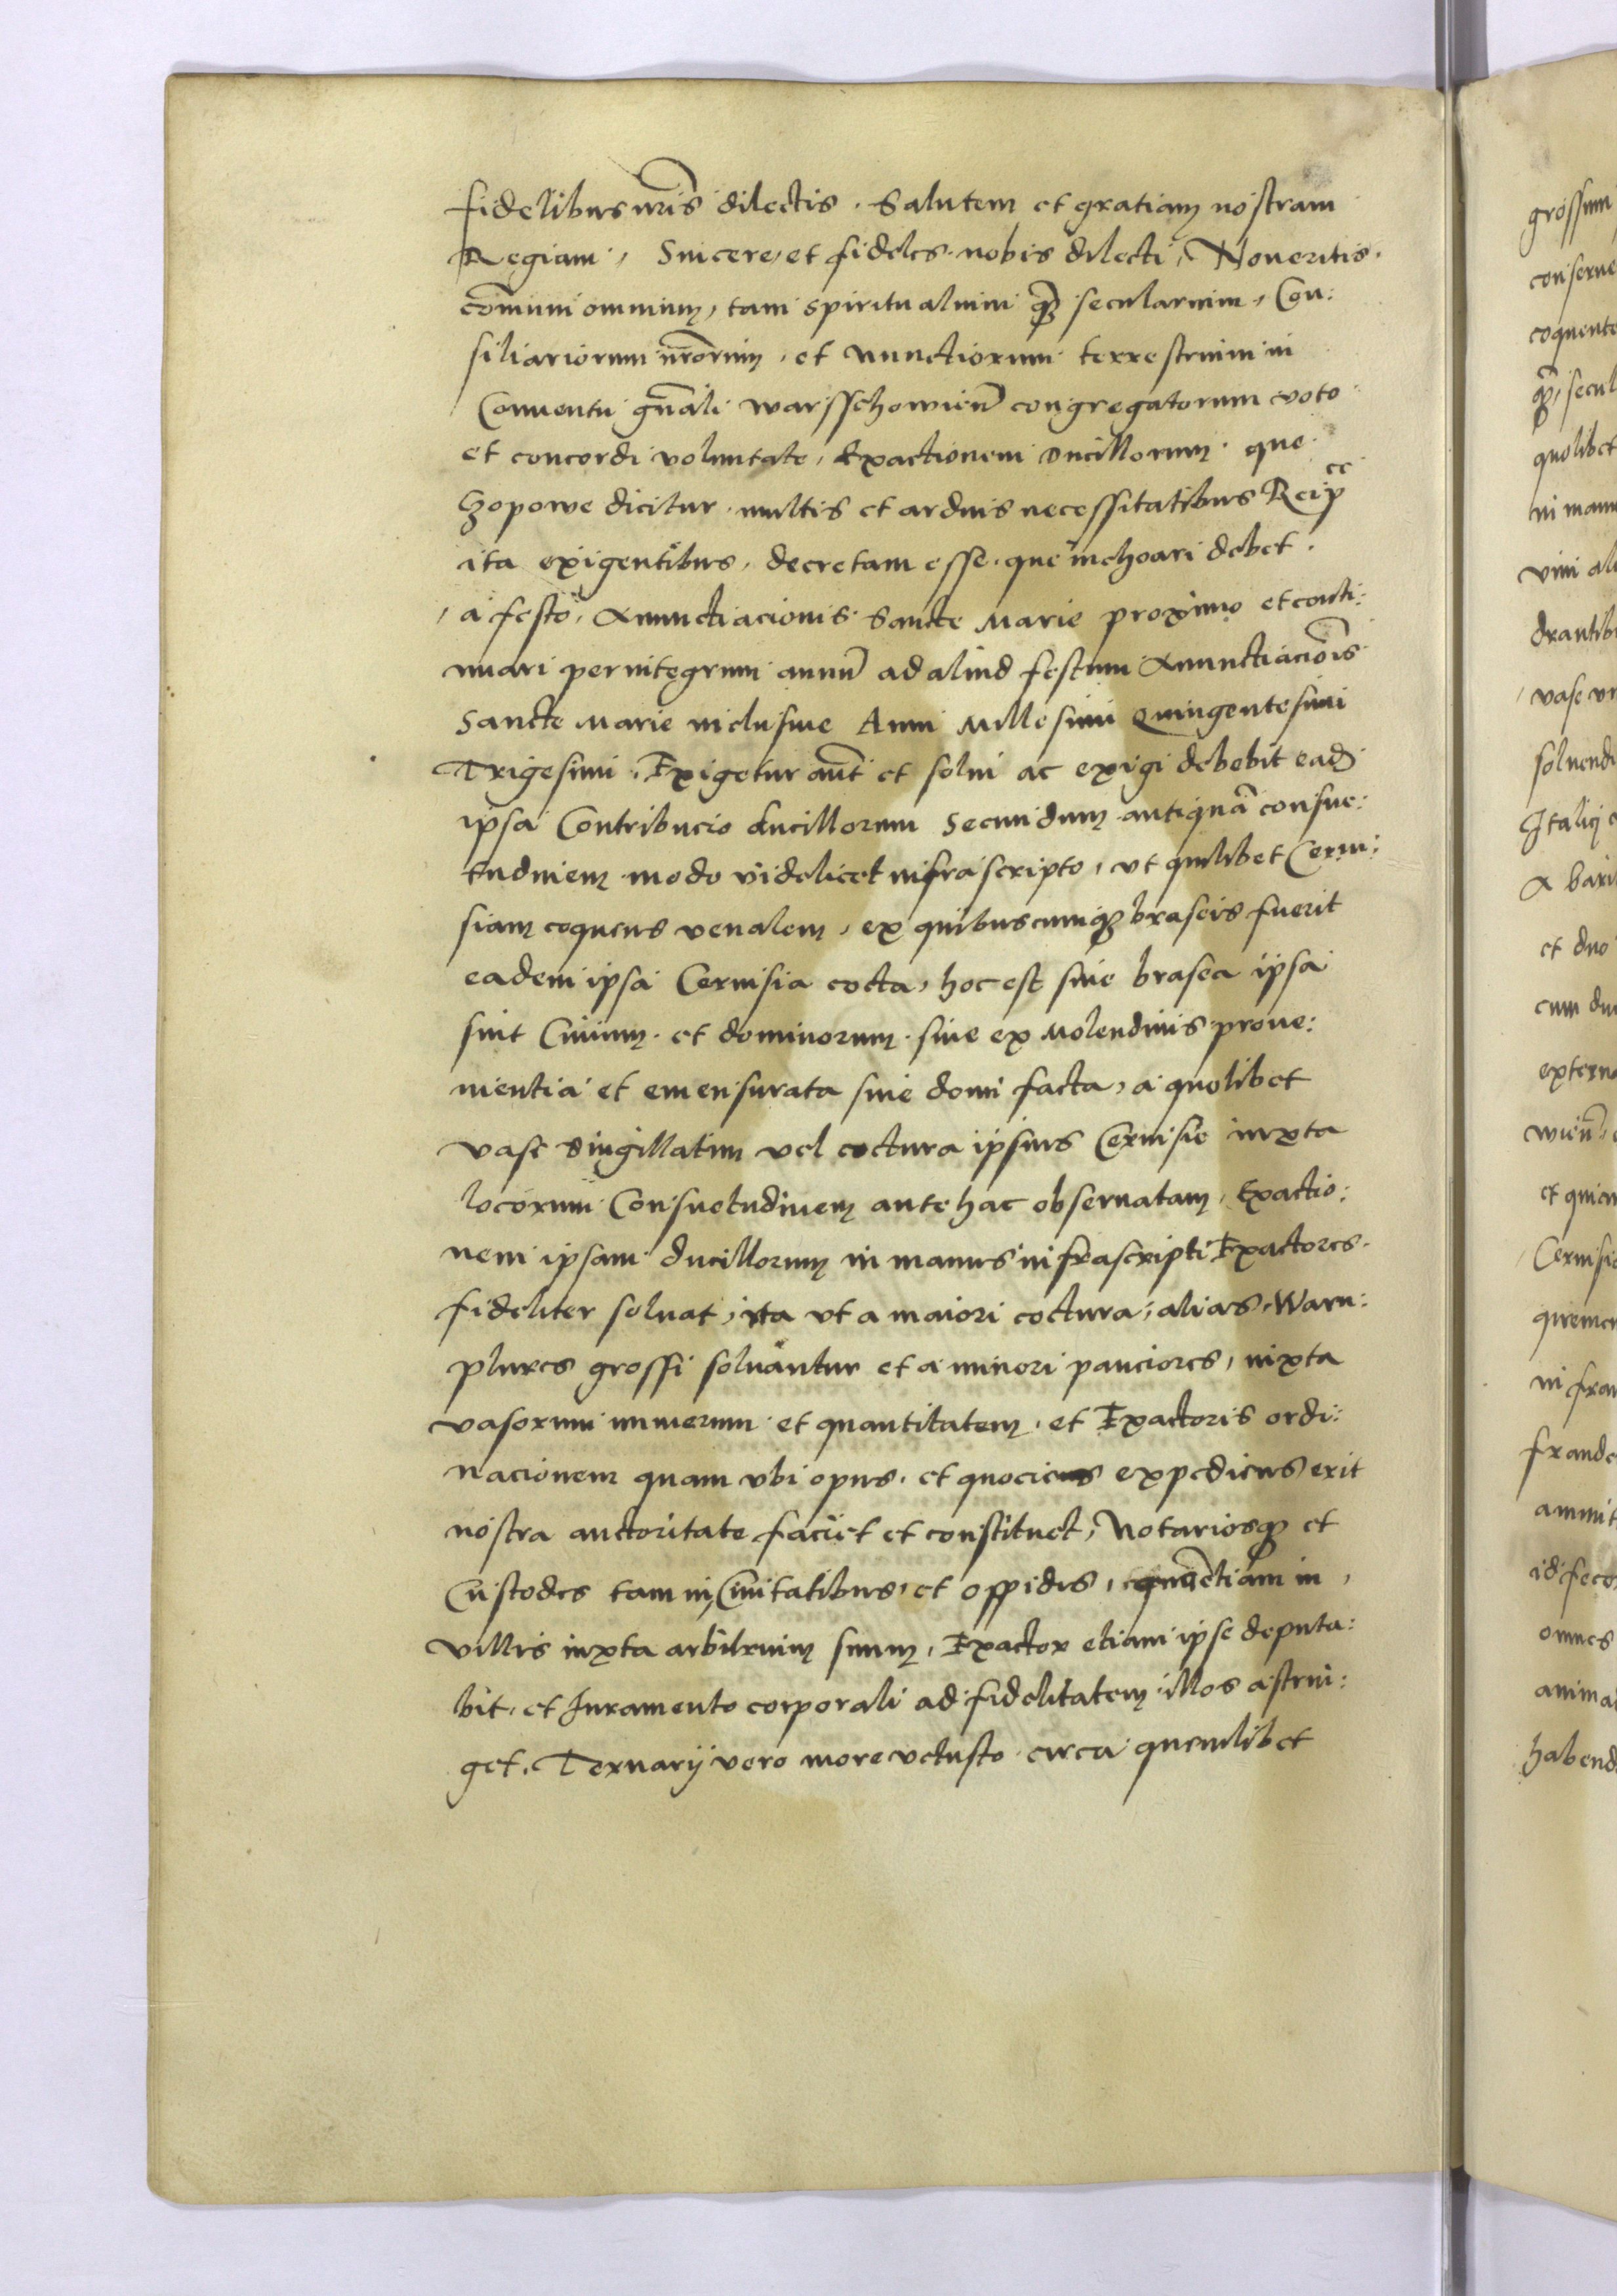 fidelibus nr̃is dilectis . Salutem et gratiam nostram
Regiam , Sincere et fideles nobis dilecti , Noveritis .
com̃uni omnium , tam spiritualium q̃ȝ secularium , Con:
siliariorum nr̃orum , et nunctiorum terrestrium in
Conventu gñali Warsschowieñ congregatorum voto
et concordi voluntate , Exactionem Ducillorum que
Czopowe dicitur multis et arduis necessitatibus Reipcȩ
ita exigentibus , decretam esse . que inchoari debet .
a festo , Anunctiacionis Sancte Marie proximo et conti:
nuari per integrum annũ ad aliud festum Anunctiacõis
Sancte Marie inclusive Anni Millesimi Quingentesimi
Trigesimi . Exigetur aũt et solvi ac exigi debebit ead̃
ipsa Contribucio ducillorum Secundum antiquã consue:
tudinem modo videlicet infrascripto , ut quilibet Cervi:
siam coquens venalem , ex quibuscumqȝ braseis fuerit
eadem ipsa Cervisia cocta , hoc est sive brasea ipsa
sint Civium et dominorum sive ex Molendinis prove:
nientia et emensurata sive domi facta , a quolibet
vase singillatim vel coctura ipsius Cervisie iuxta
locorum Consuetudinem ante hac observatam , Exactio:
nem ipsam ducillorum in manus infrascripti Exactores .
fideliter solvat , ita ut a maiori coctura , alias Waru :
plures grossi solvantur et a minori pauciores , iuxta
vasorum numerum et quantitatem . et Exactoris ordi:
nacionem quam ubi opus . et quociens expediens erit
nostra auctoritate faciet et constituet , Notariosqȝ et
Custodes tam in Civitatibus , et oppidis , quã etiam in ,
villis iuxta arbitrium suum , Exactor etiam ipse deputa:
bit . et Iuramento corporali ad fidelitatem illos astrin:
get . Ternarij vero more vetusto circa quemlibet
grossum
conserve
coquente
q̃ȝ , secul
quolibet
in manu
vini ali
drantib
vase vi
solvendi
Italici
A bari
et duo
cum du
externo
wieñ
et quicu
Cervisi
infra
fraude
id feco
omnes
habend